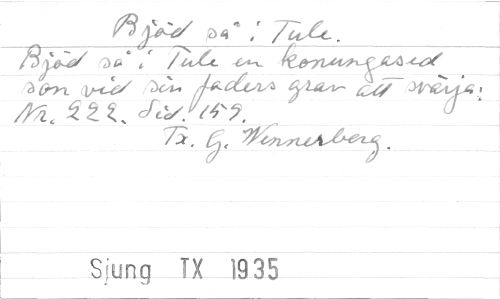 Bjöd så i Tule.
Bjöd så i Tule en konungased
son vid sin faders grav att svärja:
Nr. 222. Sid. 159.
Tx. G. Wennerberg.
Sjung TX 1935